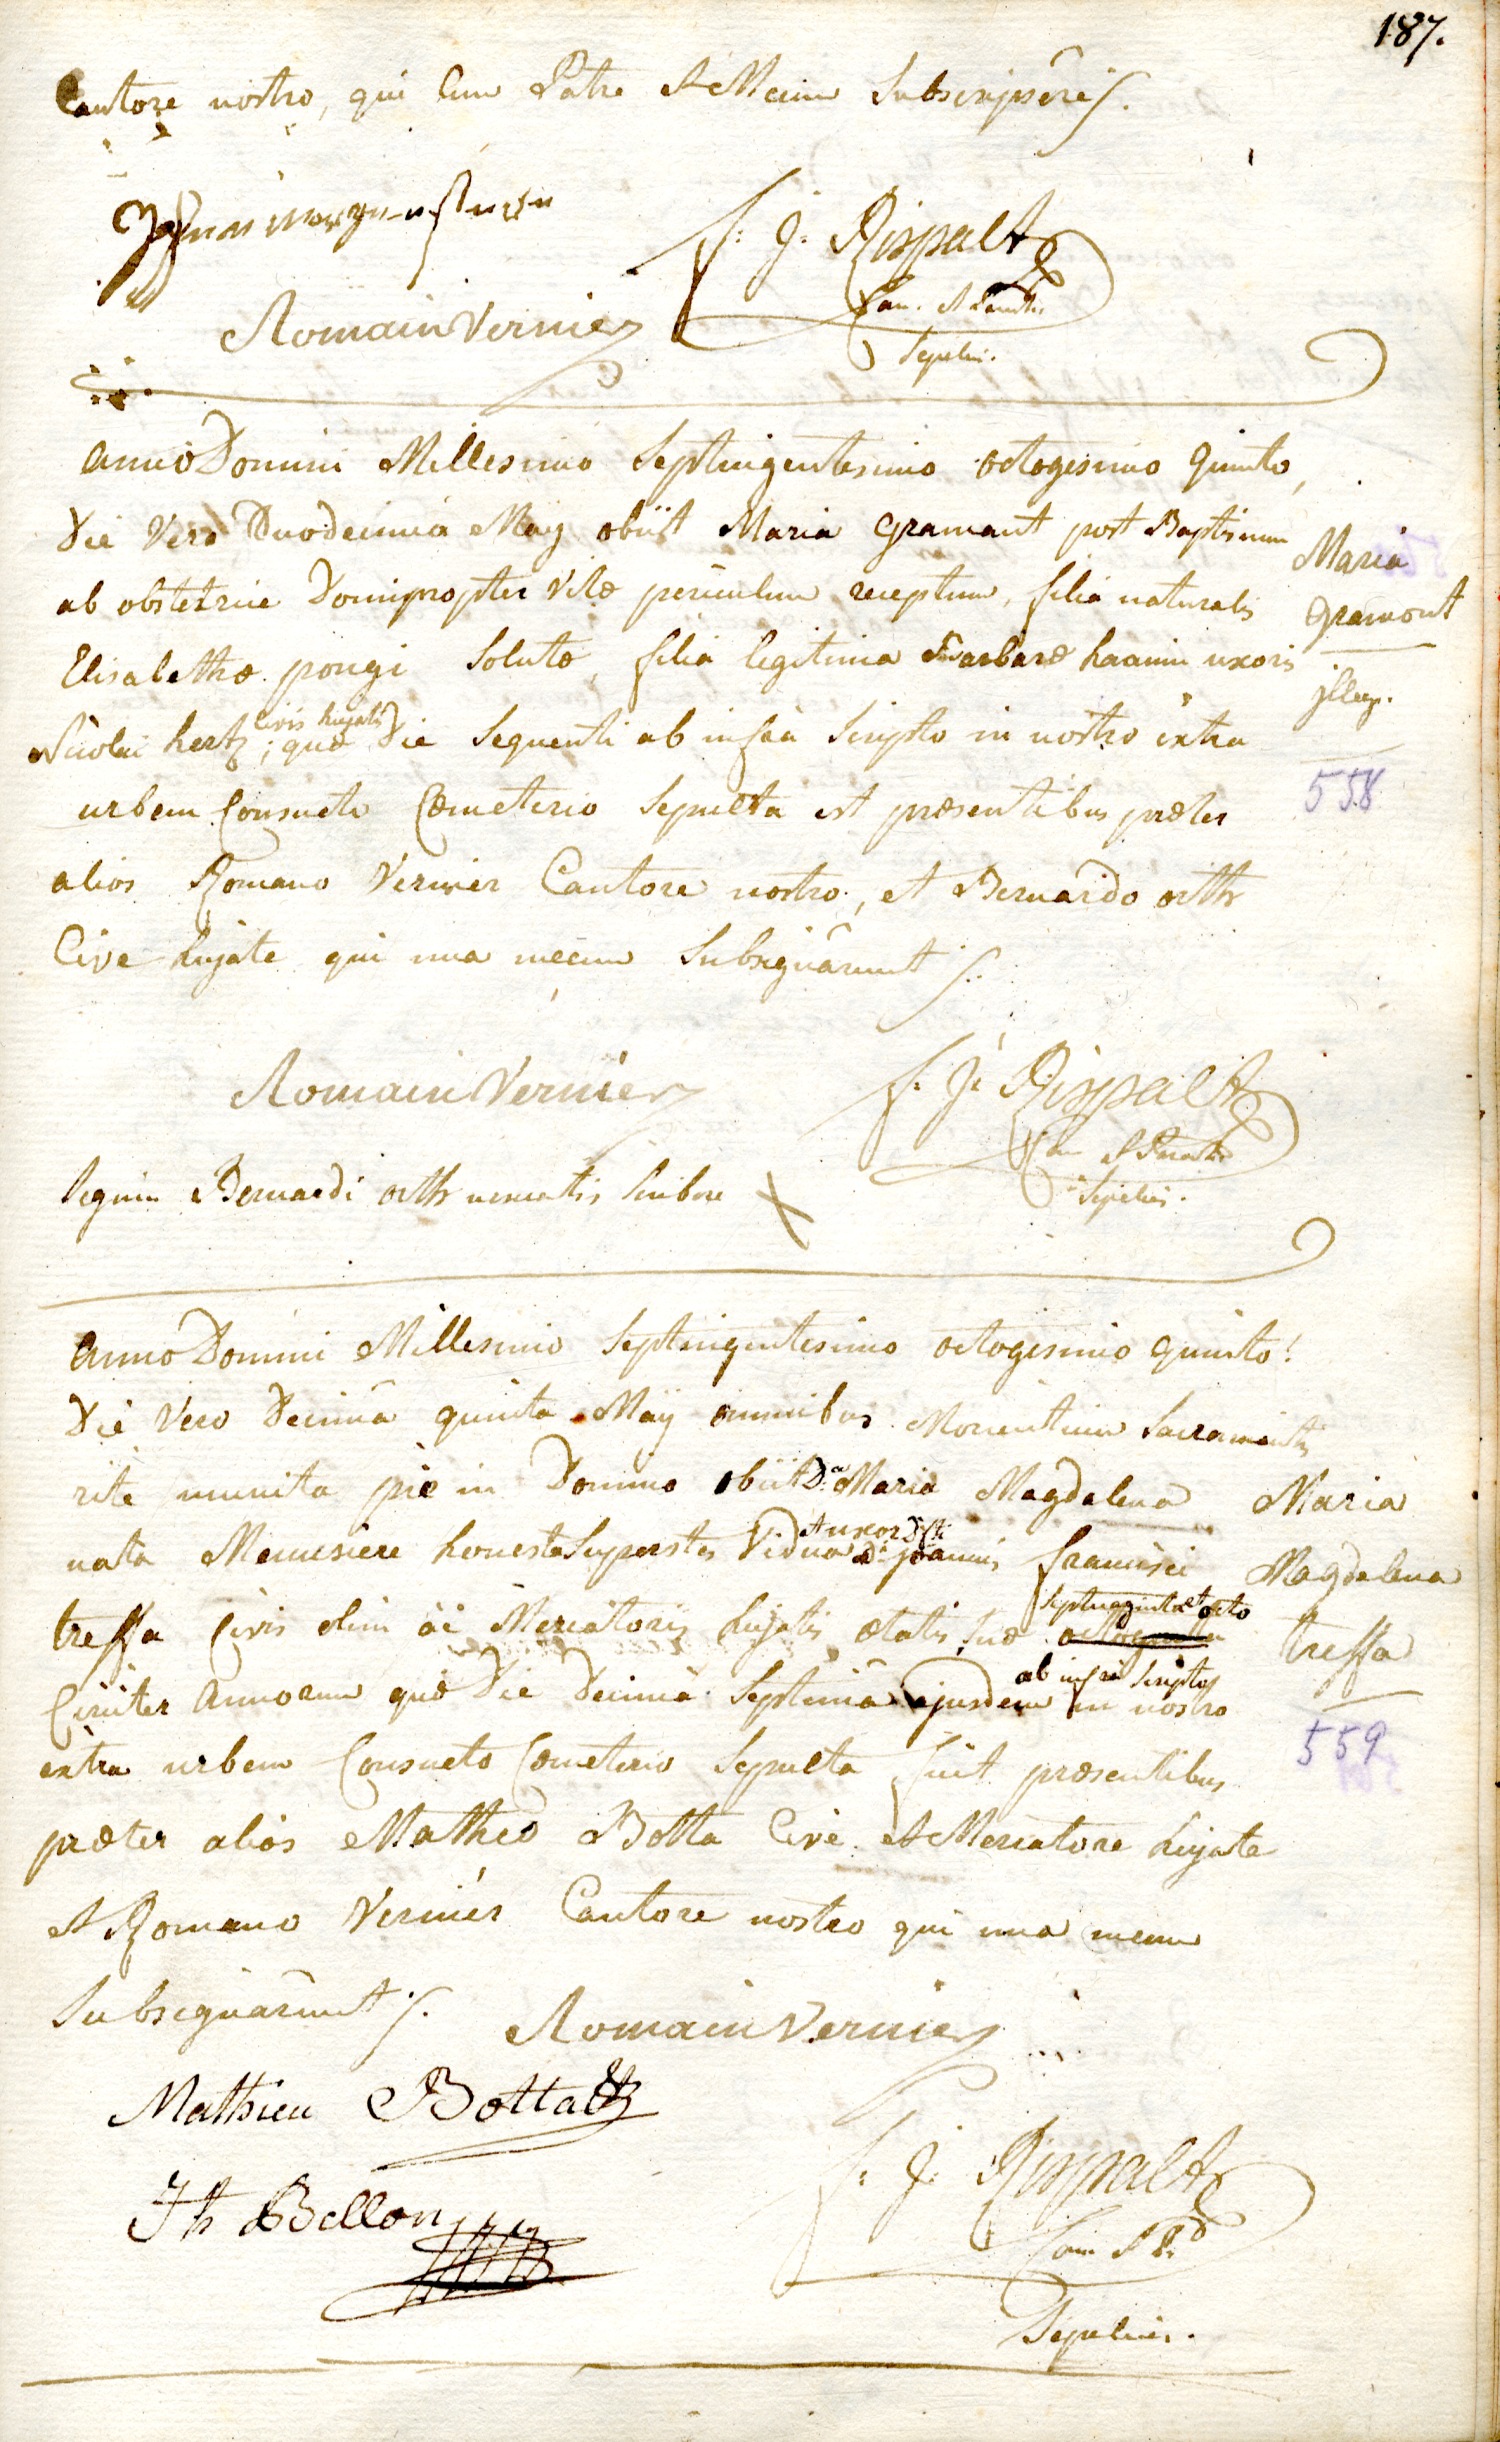 187.
Cantore nostro, qui Cum Patre et Mecum Subscripsere
f. J. Rispalt
Romain Vernier
Can. et Parochus
Sepelivi.
Anno Domini Millesimo Septingentesimo octogesimo Quinto,
Die Vero Duodecima May obiit Maria Gramant post Baptismum
ab obstetrice Domi propter Vitæ periculum receptum, filia naturalis
Elisabethæ pougi Solutæ, filia legitima Barbaræ haamin uxoris
Nicolai hertz civis hujatis; quæ Die Sequenti ab infrà Scripto in nostro extra
urbem Consueto Cœmeterio Sepulta est præsentibus præter
alios Romano Vernier Cantore nostro, et Bernardo orth
Cive hujate qui una mecum Subsignârunt
Maria
Gramont
jlleg.
558
Romain Vernier
f. J. Rispalt
Sepelivi.
Signum Bernardi orth nescientis Scribere X
Anno Domini Millesimo Septingentesimo octogesimo Quinto!
Die Vero Decimâ quinta Maÿ omnibus Morientium Sacramentis
rite munita piè in Domino obiit D.a Maria Magdalena
nata Menusiere honesta Superstes Vidua et uxor D.i joannis francisci
treffa Civis olim ac Mercatoris hujatis ætatis Suæ septuaginta et octo
Circiter Annorum quæ Die Decimâ Septimâ ejusdem ab infrà Scripto in nostro
extra urbem Consueto Cœmeterio Sepulta fuit præsentibus
præter alios Matheo Botta Cive et Mercatore hujate
et Romano Vernier Cantore nostro qui una mecum
Subsignârunt
Maria
Magdalena
treffa
559
Romain Vernier
Mathieu Botta
Jh Bellon
f. J. Rispalt
Sepelivi.